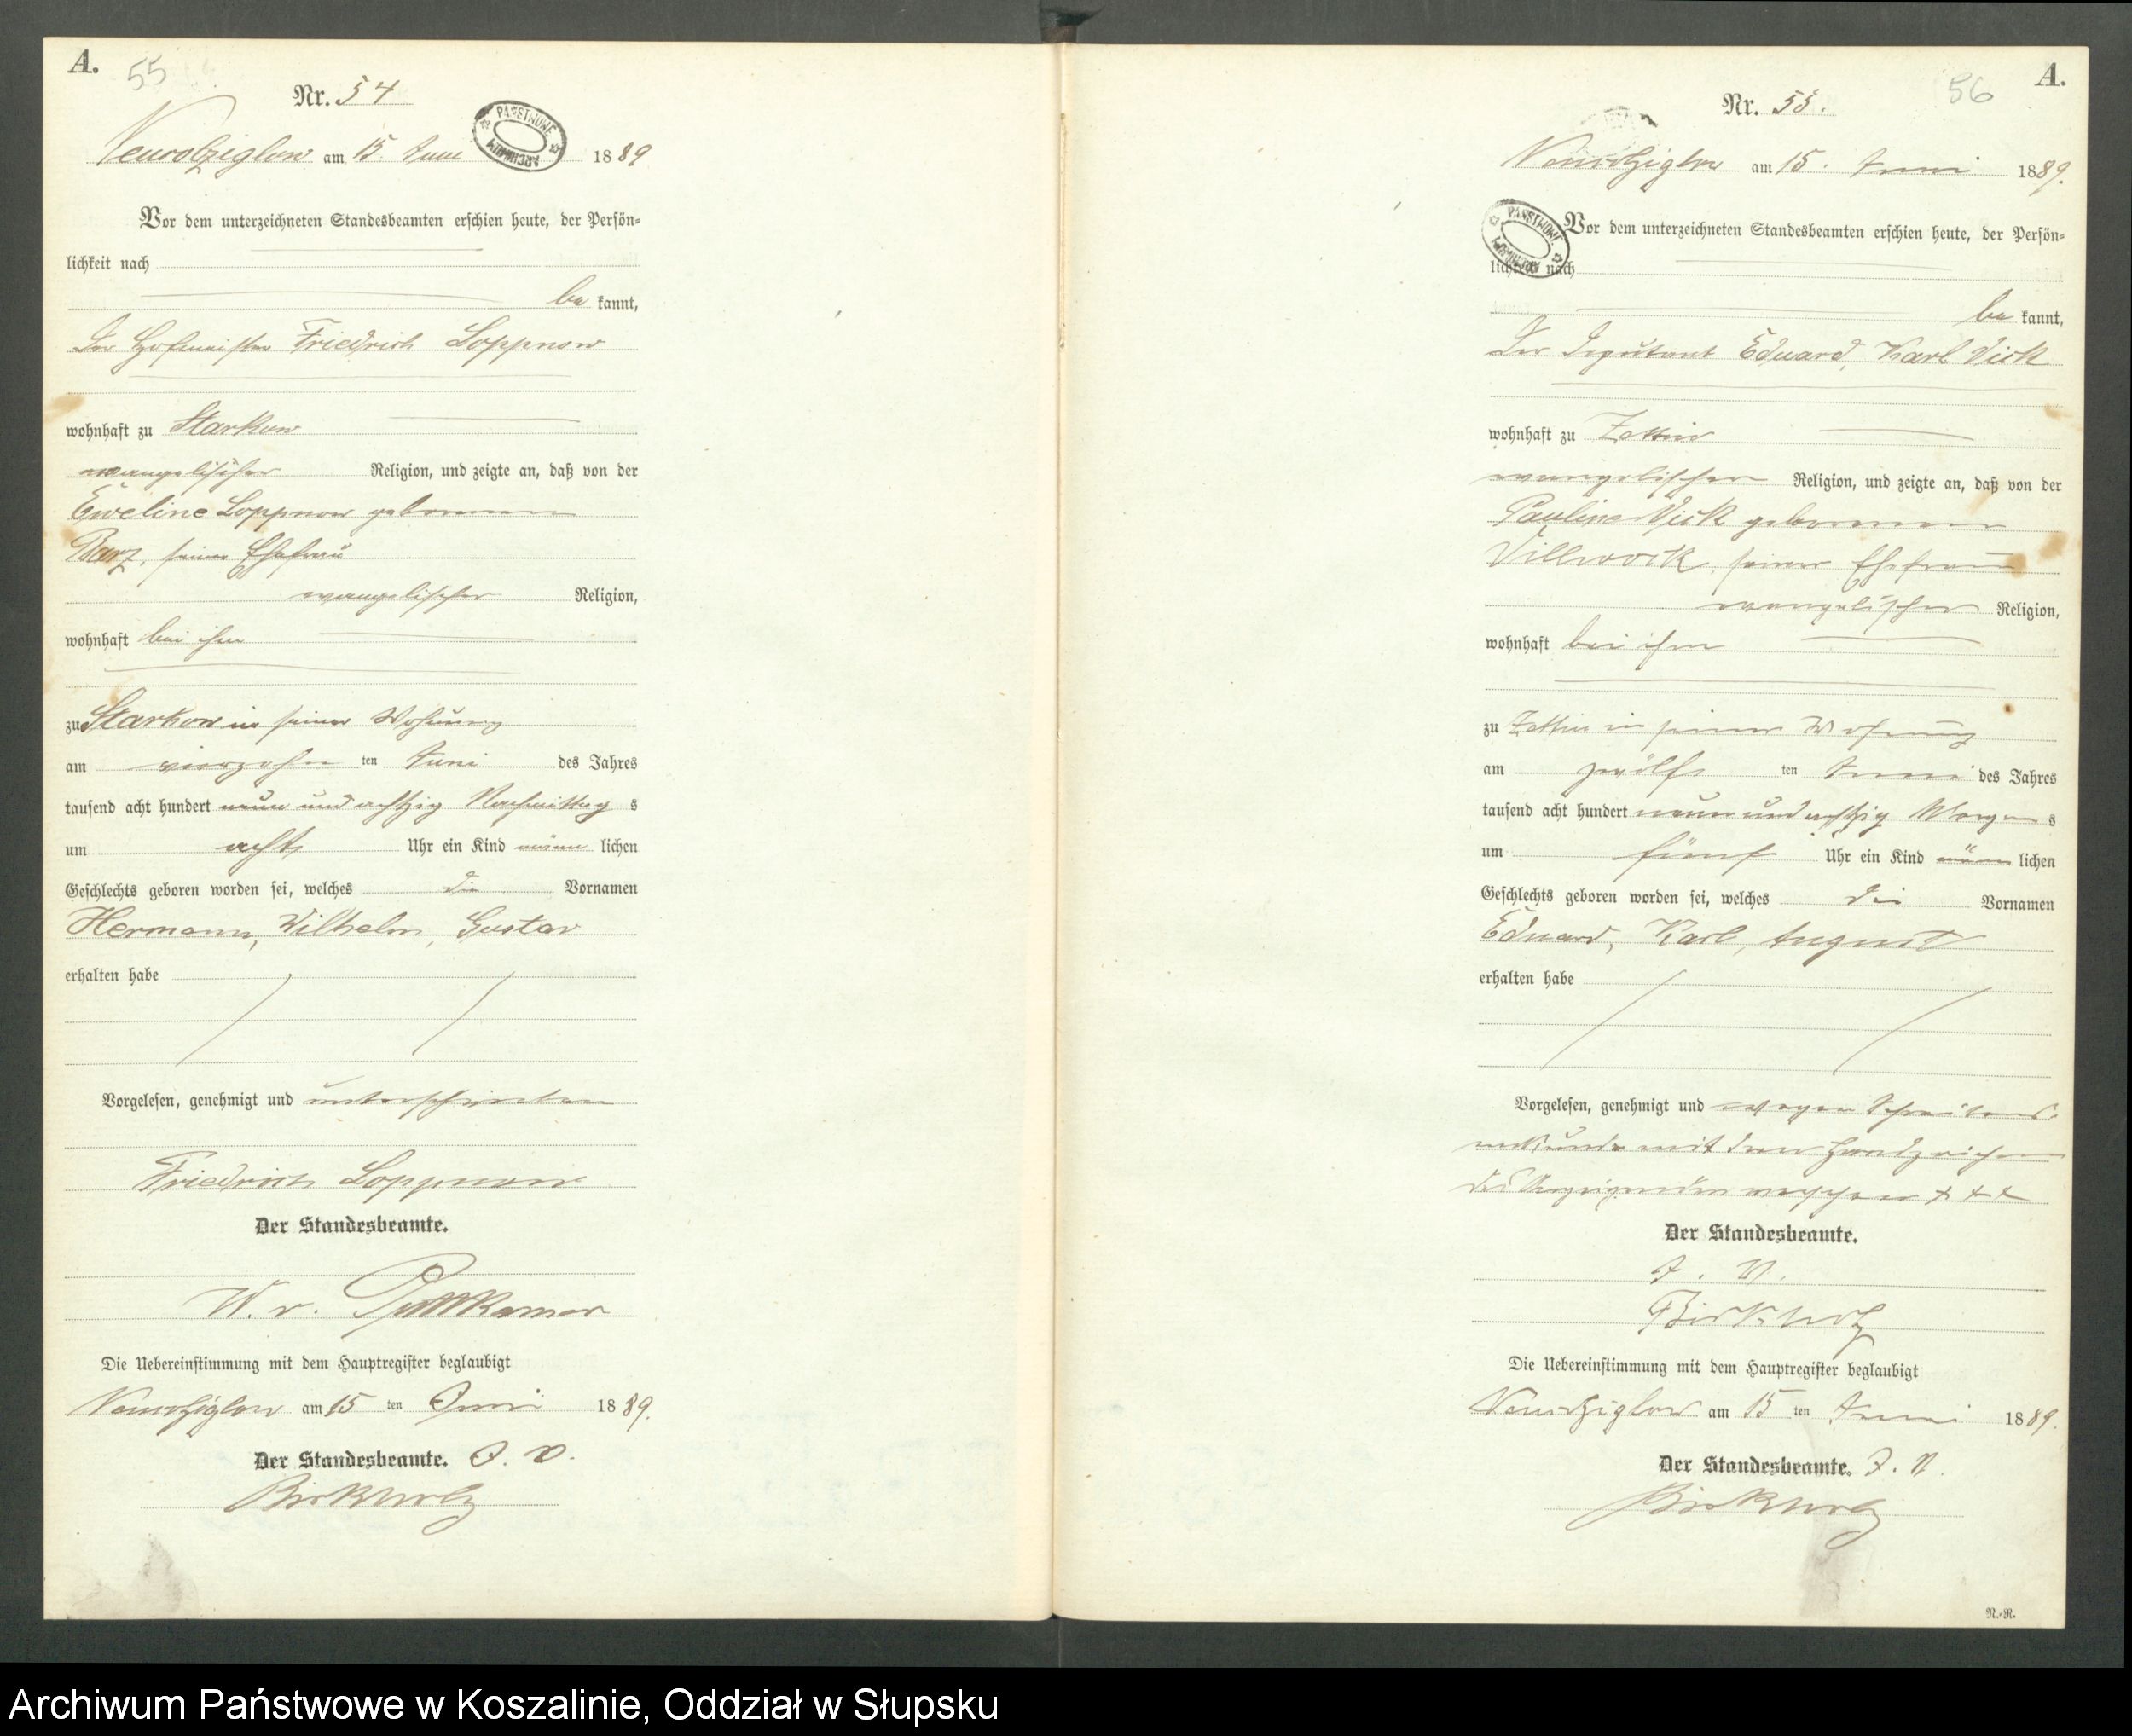 A.
55
Nr. 54
PAŃSTWOWE ARCHIWUM
Neuwolziglow am 15. Juni 1889
Vor dem unterzeichneten Standesbeamten erschien heute, der Persön-
lichkeit nach
be kannt,
Der Hofmeister Friedrich Loppnow
wohnhaft zu Starkow
evangelischer Religion, und zeigte an, daß von der
Eweline Loppnow geborenen
Barz, seiner Ehefrau
evangelischer Religion,
wohnhaft bei ihm
zu Starkow in seiner Wohnung
am vierzehn ten Juni des Jahres
tausend acht hundert neun und achtzig Nachmittag s
um acht Uhr ein Kind männ lichen
Geschlechts geboren worden sei, welches die Vornamen
Hermann, Wilhelm, Gustav
erhalten habe
Vorgelesen, genehmigt und unterschrieben
Friedrich Loppnow
Der Standesbeamte.
W. v. Puttkamer
Die Uebereinstimmung mit dem Hauptregister beglaubigt
Neuwolziglow am 15 ten Juni 1889.
Der Standesbeamte. J. V.
Birkholz
A.
56
Nr. 55.
Neuwolziglow am 15. Juni 1889.
PAŃSTWOWE ARCHIWUM
Vor dem unterzeichneten Standesbeamten erschien heute, der Persön-
lichkeit nach
be kannt,
Der Deputant Eduard, Karl Vick
wohnhaft zu Zettin
evangelischer Religion, und zeigte an, daß von der
Pauline Vick geborenen
Villwock, seiner Ehefrau
evangelischer Religion,
wohnhaft bei ihm
zu Zettin in seiner Wohnung
am zwölf ten Juni des Jahres
tausend acht hundert neun und achtzig Morgen s
um fünf Uhr ein Kind männ lichen
Geschlechts geboren worden sei, welches die Vornamen
Eduard, Karl, August
erhalten habe
Vorgelesen, genehmigt und wegen Schreibens-
unkunde mit dem Handzeichen
des Anzeigenden versehen + + +
Der Standesbeamte.
J. V.
Birkholz
Die Uebereinstimmung mit dem Hauptregister beglaubigt
Neuwolziglow am 15 ten Juni 1889.
Der Standesbeamte. J. V.
Birkholz
N.-N.
Archiwum Państwowe w Koszalinie, Oddział w Słupsku